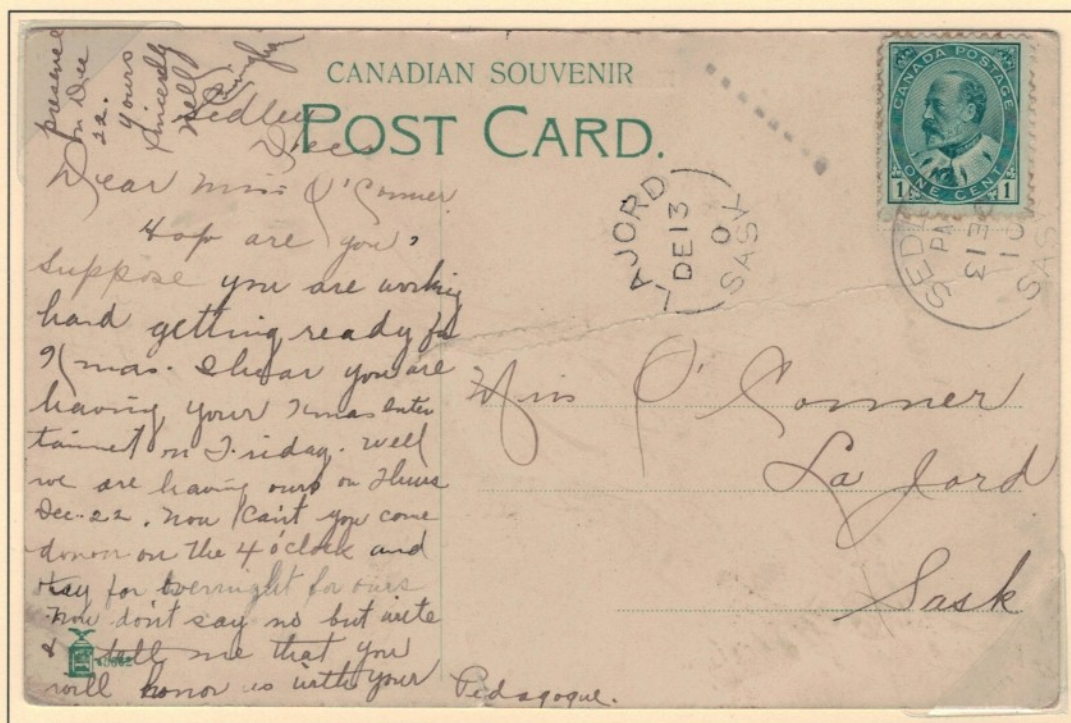 CANADIAN SOUVENIR
POST CARD.
CANADA POSTAGE
ONE CENT
1 1
LAJORD
DE 13
0
SASK
SED
PM
DE 13
10
SAS
Sedley
Dec
Dear Miss O'Conner.
How are you?
Suppose you are working
hard getting ready for
Xmas. I hear you are
having your Xmas enter
tainment on Friday. Well
we are having ours on Thurs
Dec. 22. Now can't you come
down on the 4 o'clock and
stay for overnight for ours
Now don't say no but write
& tell me that you
will honor us with your
presence
on Dec
22.
Yours
Sincerely
Nell
Pedagogue.
Miss O'Conner
La Jord
Sask